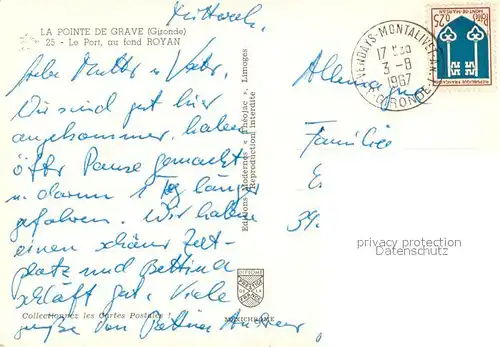 Mittwoch.
LA POINTE DE GRAVE (Gironde)
25 - Le Port, au fond ROYAN
Liebe Mutter u. Vater,
Wir sind gut hier
angekommen, haben
öfter Pause gemacht
u. darum 1 Tag länger
gefahren. Wir haben
einen schönen Zelt-
platz und Bettina
schläft gut. Viele
Grüße von Bettina
Editions Modernes « Théojac », Limoges
Reproduction interdite
Collectionnez les Cartes Postales !
VENDAYS-MONTALIVET
17 H30
3 - 8
1967
GIRONDE
Postes
0,25
MONT-DE-MARSAN
Allemagne
Familie
E.
34.
privacy protection
Datenschutz